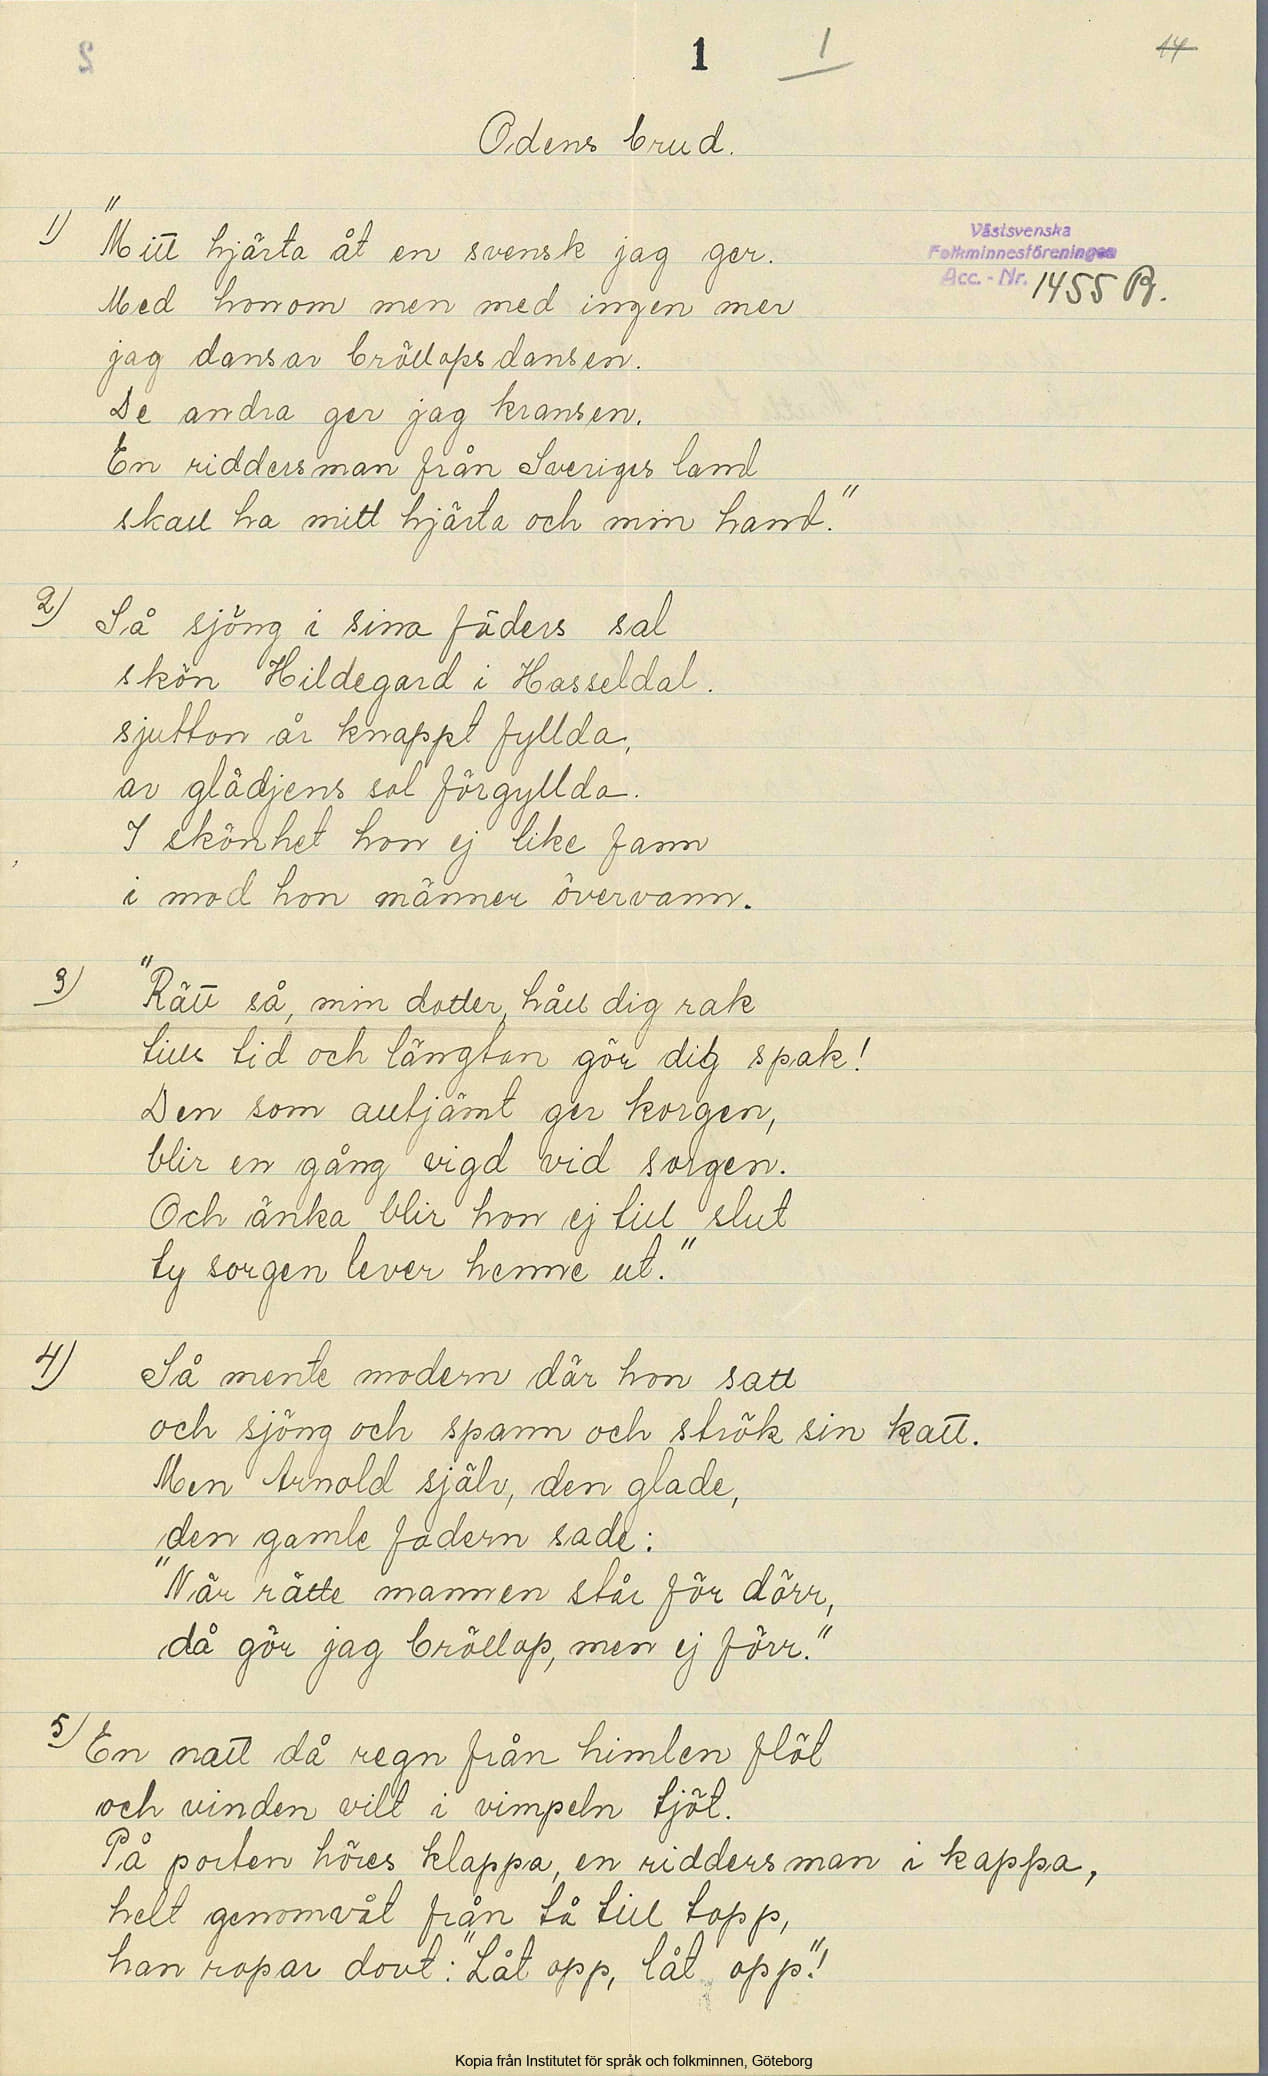 1
1
14
Odens brud.
Västsvenska
Folkminnesföreningen
Acc. - Nr. 1455 B.
1) "Mitt hjärta åt en svensk jag ger.
Med honom men med ingen mer
jag dansar bröllopsdansen.
De andra ger jag kransen.
En riddersman från Sveriges land
skall ha mitt hjärta och min hand."
2) Så sjöng i sina fäders sal
skön Hildegard i Hasseldal.
sjutton år knappt fyllda,
av glädjens sol förgyllda.
I skönhet hon ej like fann
i mod hon männer övervann.
3) "Rätt så, min dotter, håll dig rak
tills tid och längtan gör dig spak!
Den som alltjämt ger korgen,
blir en gång vigd vid sorgen.
Och änka blir hon ej till slut
ty sorgen lever henne ut."
4) Så mente modern där hon satt
och sjöng och spann och strök sin katt.
Men Arnold själv, den glade,
den gamle fadern sade:
"När rätte mannen står för dörr,
då gör jag bröllop, men ej förr."
5) En natt då regn från himlen flöt
och vinden vilt i vimpeln tjöt.
På porten höres klappa, en riddersman i kappa,
helt genomvåt från tå till topp,
han ropar dovt: "Låt opp, låt opp."!
Kopia från Institutet för språk och folkminnen, Göteborg